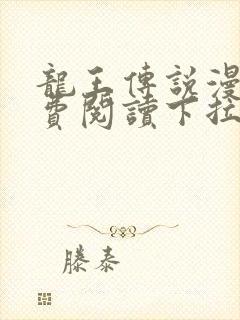 龍王傳說漫
費閱讀下拉
滕泰